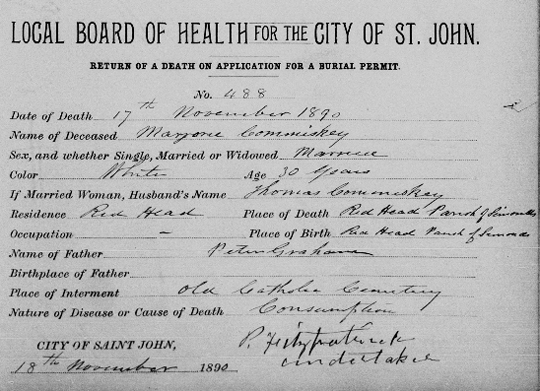 LOCAL BOARD OF HEALTH FOR THE CITY OF ST. JOHN.
RETURN OF A DEATH ON APPLICATION FOR A BURIAL PERMIT.
No. 488
Date of Death 17th November 1890
Name of Deceased Marjorie Commiskey
Sex, and whether Single, Married or Widowed Married
Color White Age 30 Years
If Married Woman, Husband's Name Thomas Commiskey
Residence Red Head Place of Death Red Head Parish of Simonds
Occupation - Place of Birth Red Head Parish of Simonds
Name of Father Peter Graham
Birthplace of Father
Place of Interment Old Catholic Cemetery
Nature of Disease or Cause of Death Consumption
CITY OF SAINT JOHN, P. Fitzpatrick
18th November 1890 undertaker